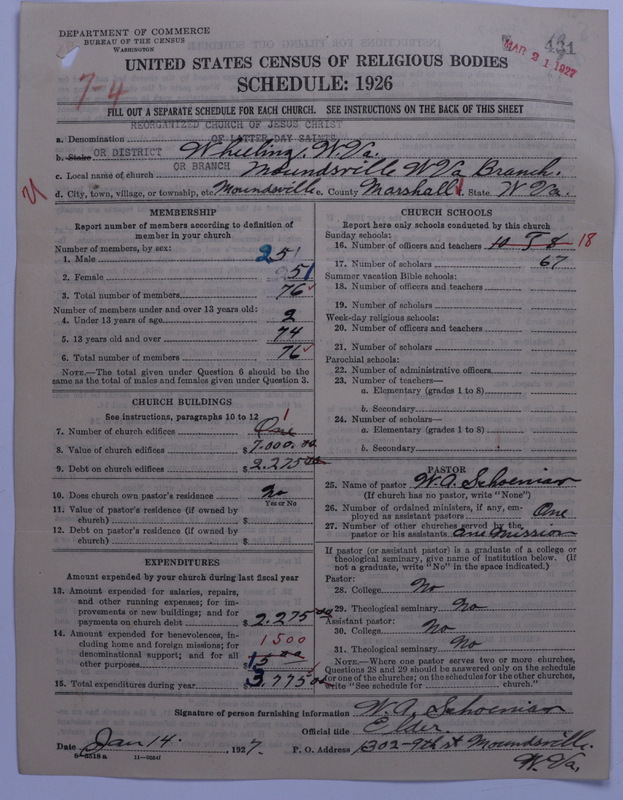 DEPARTMENT OF COMMERCE
BUREAU OF THE CENSUS
WASHINGTON
431
MAR 21 1927
UNITED STATES CENSUS OF RELIGIOUS BODIES
7-4
SCHEDULE: 1926
FILL OUT A SEPARATE SCHEDULE FOR EACH CHURCH. SEE INSTRUCTIONS ON THE BACK OF THIS SHEET
REORGANIZED CHURCH OF JESUS CHRIST
a. Denomination
OF LATTER DAY SAINTS
OR DISTRICT
b. State Wheeling, W. Va.
OR BRANCH
c. Local name of church Moundsville W Va Branch.
d. City, town, village, or township, etc. Moundsville e. County Marshall f. State W Va.
MEMBERSHIP
Report number of members according to definition of
member in your church
Number of members, by sex:
1. Male 25
2. Female 51
3. Total number of members 76
Number of members under and over 13 years old:
4. Under 13 years of age 2
5. 13 years old and over 74
6. Total number of members 76
NOTE.—The total given under Question 6 should be the
same as the total of males and females given under Question 3.
CHURCH BUILDINGS
See instructions, paragraphs 10 to 12
7. Number of church edifices One 1
8. Value of church edifices $7.000.00
9. Debt on church edifices $2.275 00
10. Does church own pastor's residence no
Yes or No
11. Value of pastor's residence (if owned by
church) $
12. Debt on pastor's residence (if owned by
church) $
EXPENDITURES
Amount expended by your church during last fiscal year
13. Amount expended for salaries, repairs,
and other running expenses; for im-
provements or new buildings; and for
payments on church debt $2.275 00
14. Amount expended for benevolences, in-
cluding home and foreign missions; for
denominational support; and for all
other purposes 1500
15. Total expenditures during year $3.775 00
CHURCH SCHOOLS
Report here only schools conducted by this church
Sunday schools:
16. Number of officers and teachers 18
17. Number of scholars 67
Summer vacation Bible schools:
18. Number of officers and teachers
19. Number of scholars
Week-day religious schools:
20. Number of officers and teachers
21. Number of scholars
Parochial schools:
22. Number of administrative officers
23. Number of teachers—
a. Elementary (grades 1 to 8)
b. Secondary
24. Number of scholars—
a. Elementary (grades 1 to 8)
b. Secondary
PASTOR
25. Name of pastor W. A. Schoenian
(If church has no pastor, write "None")
26. Number of ordained ministers, if any, em-
ployed as assistant pastors One
27. Number of other churches served by the
pastor or his assistants. One Mission
If pastor (or assistant pastor) is a graduate of a college or
theological seminary, give name of institution below. (If
not a graduate, write "No" in the space indicated.)
Pastor:
28. College No
29. Theological seminary No
Assistant pastor:
30. College No
31. Theological seminary No
NOTE.—Where one pastor serves two or more churches,
Questions 28 and 29 should be answered only on the schedule
for one of the churches; on the schedules for the other churches,
write "See schedule for church."
Signature of person furnishing information W. A. Schoenian
Official title Elder
Date Jan 14. , 1927. P. O. Address 1302-9th st Moundsville.
W. Va.
8-5518a